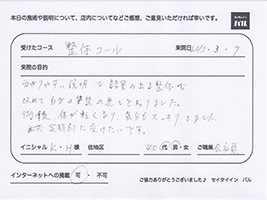 本日の施術や説明について、店内についてなどご感想、ご意見いただければ幸いです。
バル
受けたコース 整体コース 来院日 2013.3.7
来院の目的
わかりやすい説明と結果のある整体で
改めて自分の姿勢の悪さを知りました。
施術後、体が軽くなり、気分もスッキリしました
定期的に受けたいです。
イニシャル K・H 様 住地区 40代 男・女 ご職業 会社員
インターネットへの掲載 可・不可
ご協力ありがとうございました♪ セイタイイン バル